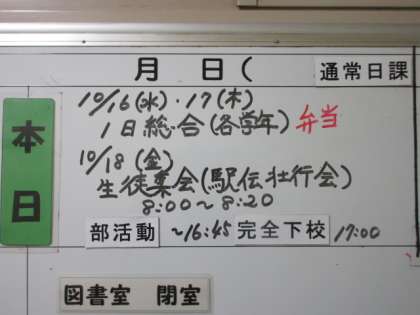 月 日( 通常日課
本日
10/16(水)・17(木)
1日総合(各学年) 弁当
10/18(金)
生徒集会(駅伝壮行会)
8:00〜8:20
部活動 〜16:45 完全下校 17:00
図書室 閉室